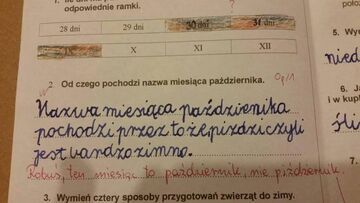 odpowiednie ramki.
28 dni 29 dni 30 dni 31 dni
IX X XI XII
2 Od czego pochodzi nazwa miesiąca października.
0p/1
Nazwa miesiąca października
pochodzi przez to że piździ czyli
jest bardzo zimno.
Kubuś, ten miesiąc to październik, nie piździernik.
3. Wymień cztery sposoby przygotowań zwierząt do zimy.
5. Wy
nied
6. J
i w kup
śli
7.